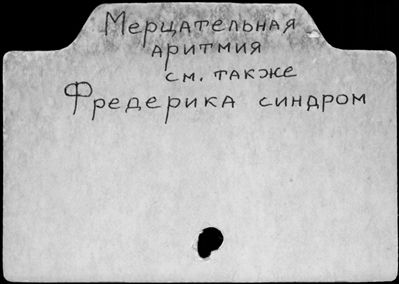 Мерцательная
аритмия
см. также
Фредерика синдром